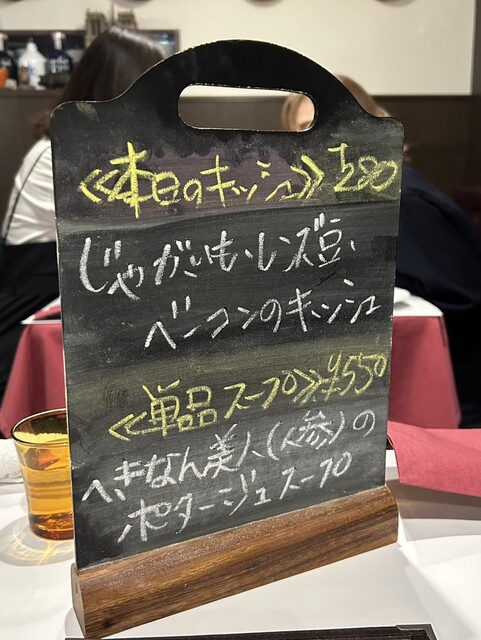 ≪本日のキッシュ≫ ¥280
じゃがいも、レンズ豆、
ベーコンのキッシュ
≪単品スープ≫ ¥550
へきなん美人(人参)の
ポタージュスープ